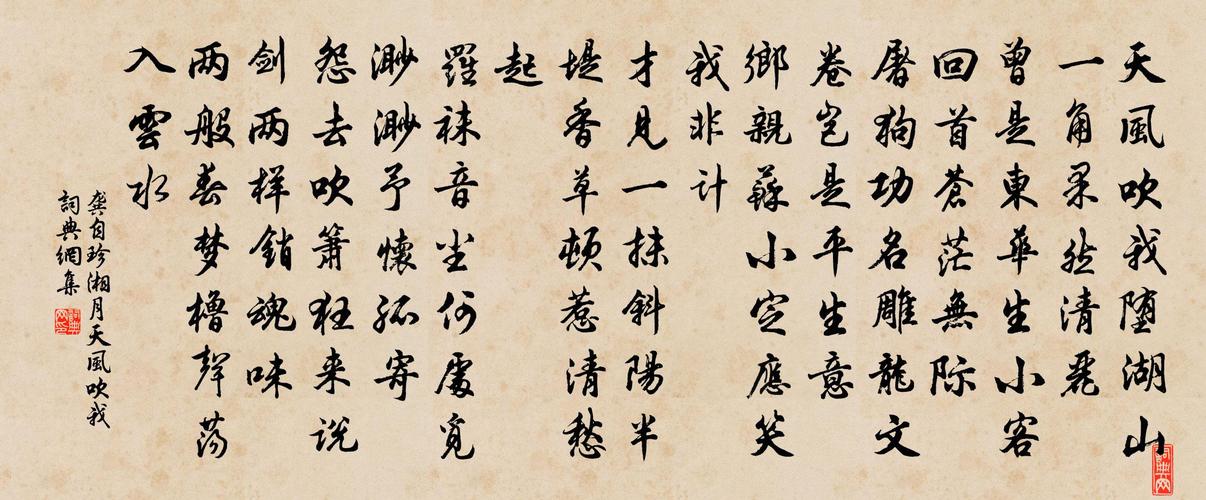 天風吹我堕湖山
一角果然清麗
曾是東華生小客
回首蒼茫無際
屠狗功名雕龍文
卷豈是平生意
鄉親蘇小定應笑
我非計
才見一抹斜陽半
堤香草頓惹清愁
起
羅袜音尘何處覓
渺渺予懷孤寄
怨去吹簫狂来説
剑两样銷魂味
两般春梦橹聲蕩
入雲水
龚自珍湘月天風吹我
詞典網集